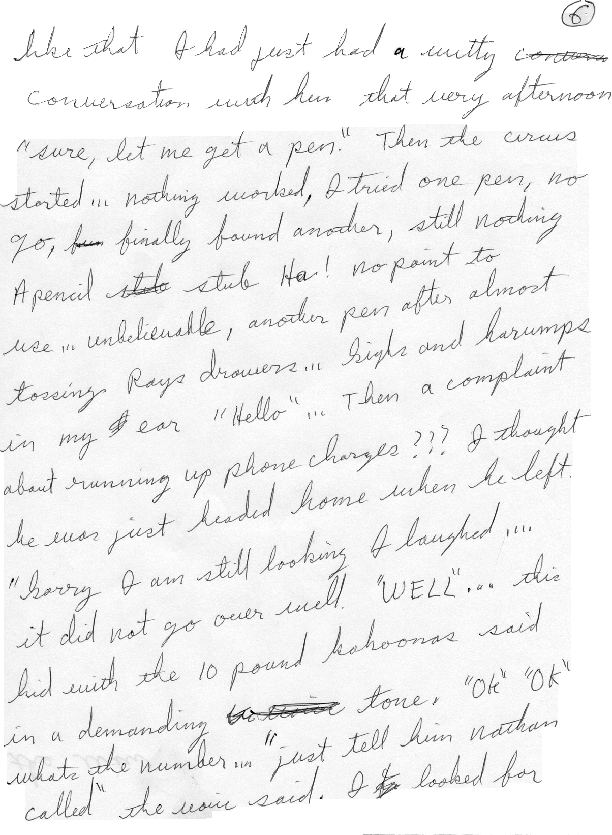 6
like that I had just had a witty
conversation with him that very afternoon
"sure, let me get a pen." Then the circus
started... nothing worked, I tried one pen, no
go, finally found another, still nothing
A pencil stub Ha! no point to
use... unbelievable, another pen after almost
tossing Rays drawers... sighs and harumps
in my ear "Hello"... Then a complaint
about running up phone charges??? I thought
he was just headed home when he left.
"Sorry I am still looking I laughed....
it did not go over well. "WELL"... this
kid with the 10 pound kahoonas said
in a demanding tone. "OK" "OK"
whats the number..." "just tell him nathan
called" the voice said. I looked for